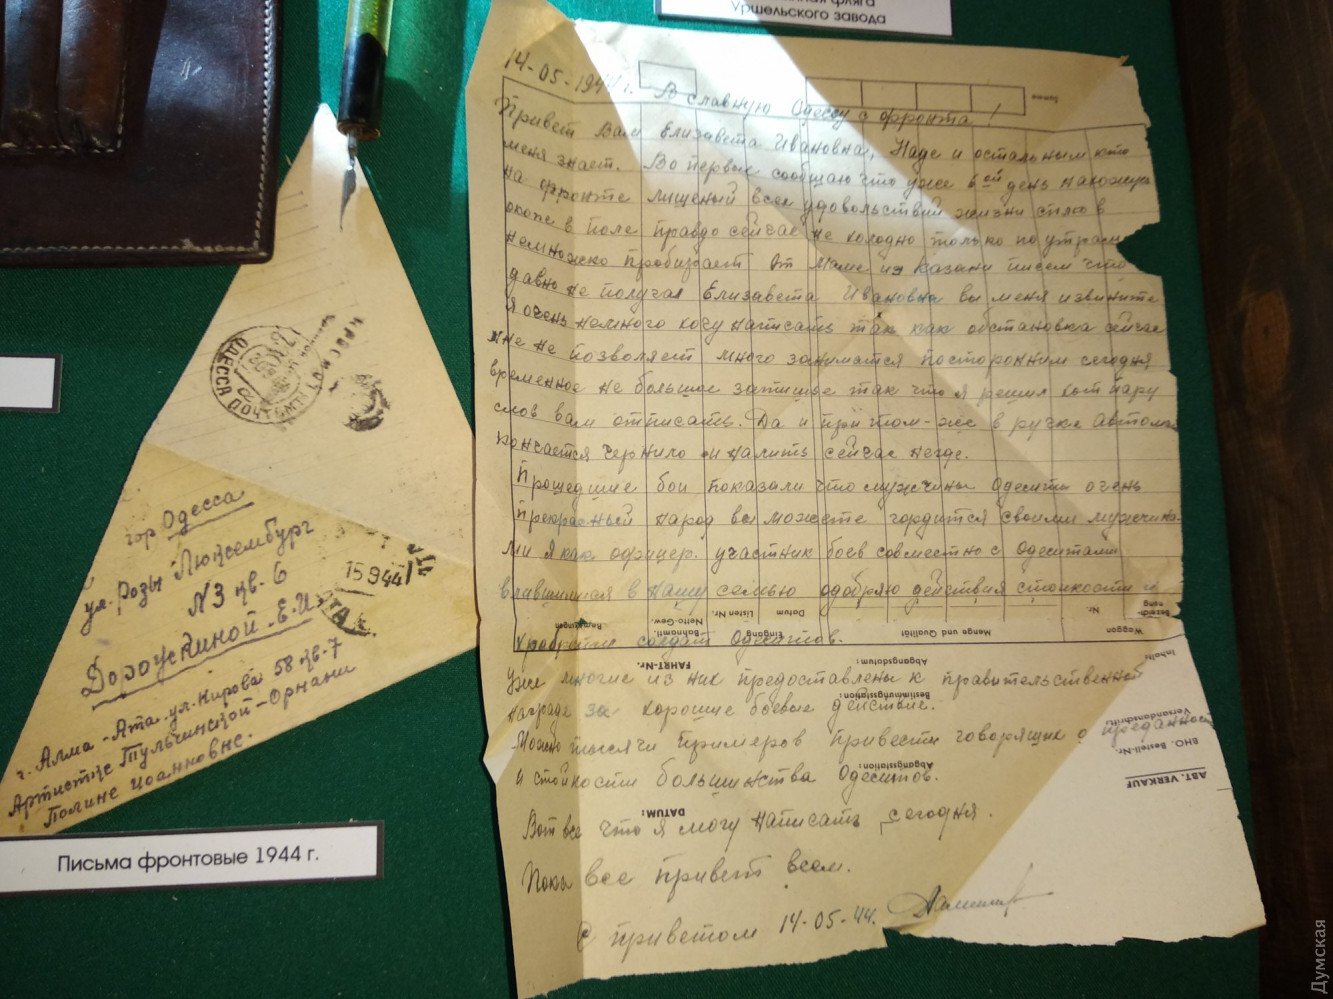 нная фляга
Уршельского завода
14-05-1944 г. В славную Одессу с фронта!
Привет Вам Елизавета Ивановна, Наде и остальным кто
меня знает. Во первых сообщаю что уже 6ой день нахожусь
на фронте лищеный всех удовольствий жизни сплю в
окопе в поле правдо сейчас не холодно только по утрам
немножко пробирает От Маме из Казани писем что
давно не получал Елизавета Ивановна вы меня извините
я очень немного хочу написать так как обстановка сейчас
мне не позволяет много заниматся посторонним сегодня
временное не большое затишье так что я решил хот пару
слов вам отписать. Да и при том-же в ручке автомат
кончается чернило и налить сейчас негде.
Прошедшие бои показали что мужчины Одеситы очень
прекрасный народ вы можете гордится своими мужчина-
ми я как офицер. участник боев совместно с Одеситами
влившимися в нашу семью одобряю действия стойкости и
храбрости солдат Одеситов.
Уже многие из них предоставлены к правительственной
награде за хорошие боевые действие.
Можно тысячи примеров привести говорящих о преданности
и стойкости большинства Одеситов.
Вот все что я могу написать сегодня.
Пока все привет всем.
С приветом 14-05-44.
Summe
Bezeich-
nung
Nr.
Datum
Listen Nr.
Netto-Gew.
Eingang
Bahnamtl.
Menge und Qualität
Waggon
FAHRT-Nr.
Abgangsdatum:
Bestimmungsstation:
Abgangsstation:
DATUM:
Inhalt:
Versandanschrift:
BHO. Bestell-Nr.
ABT. VERKAUF
ОДЕССА ПОЧТАМТ
гор Одесса
ул. Розы Люксембург
№3 кв. 6
15 9 44
Дороужиной-Е.И.
г. Алма-Ата. ул. Кирова 58 кв. 7
Артистке Тульчинской-Орнани
Полине Иоанновне.
Письма фронтовые 1944 г.
Думская